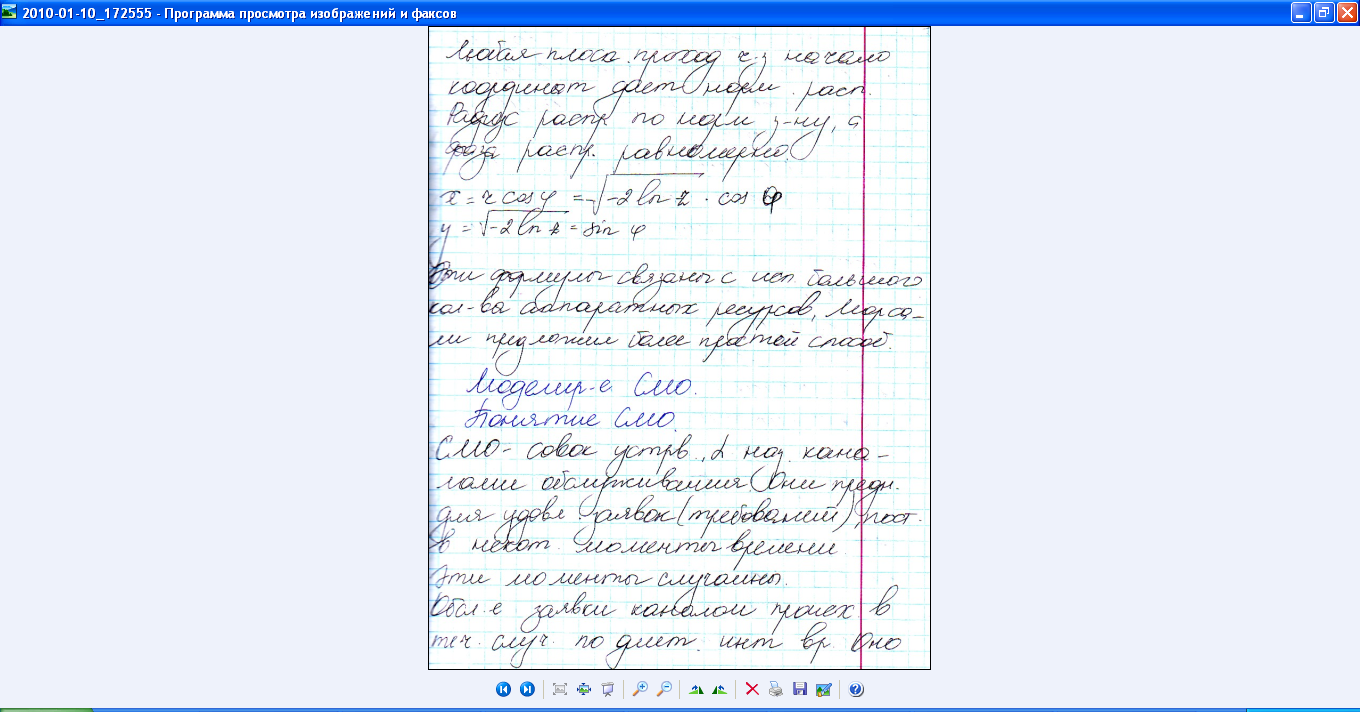 2010-01-10_172555 - Программа просмотра изображений и факсов
Любая плоск. проход ч-з начало
координат дает норм. расп.
Радиус распр по норм з-ну, а
фаза распр. равномерно.
x = r cos φ = √-2 ln z · cos φ
y = √-2 ln z = sin φ
Эти формулы связаны с исп. большого
кол-ва аппаратных ресурсов, Марса-
ли предложил более простой способ.
Моделир-е СМО.
Понятие СМО.
СМО - совок устрв., наз. кана-
лами обслуживания. Они предн.
для удовл. заявок (требований), пост.
в некот. моменты времени
Эти моменты случайны.
Обсл-е заявки каналом происх в
теч. случ. по длит. инт вр. Оно